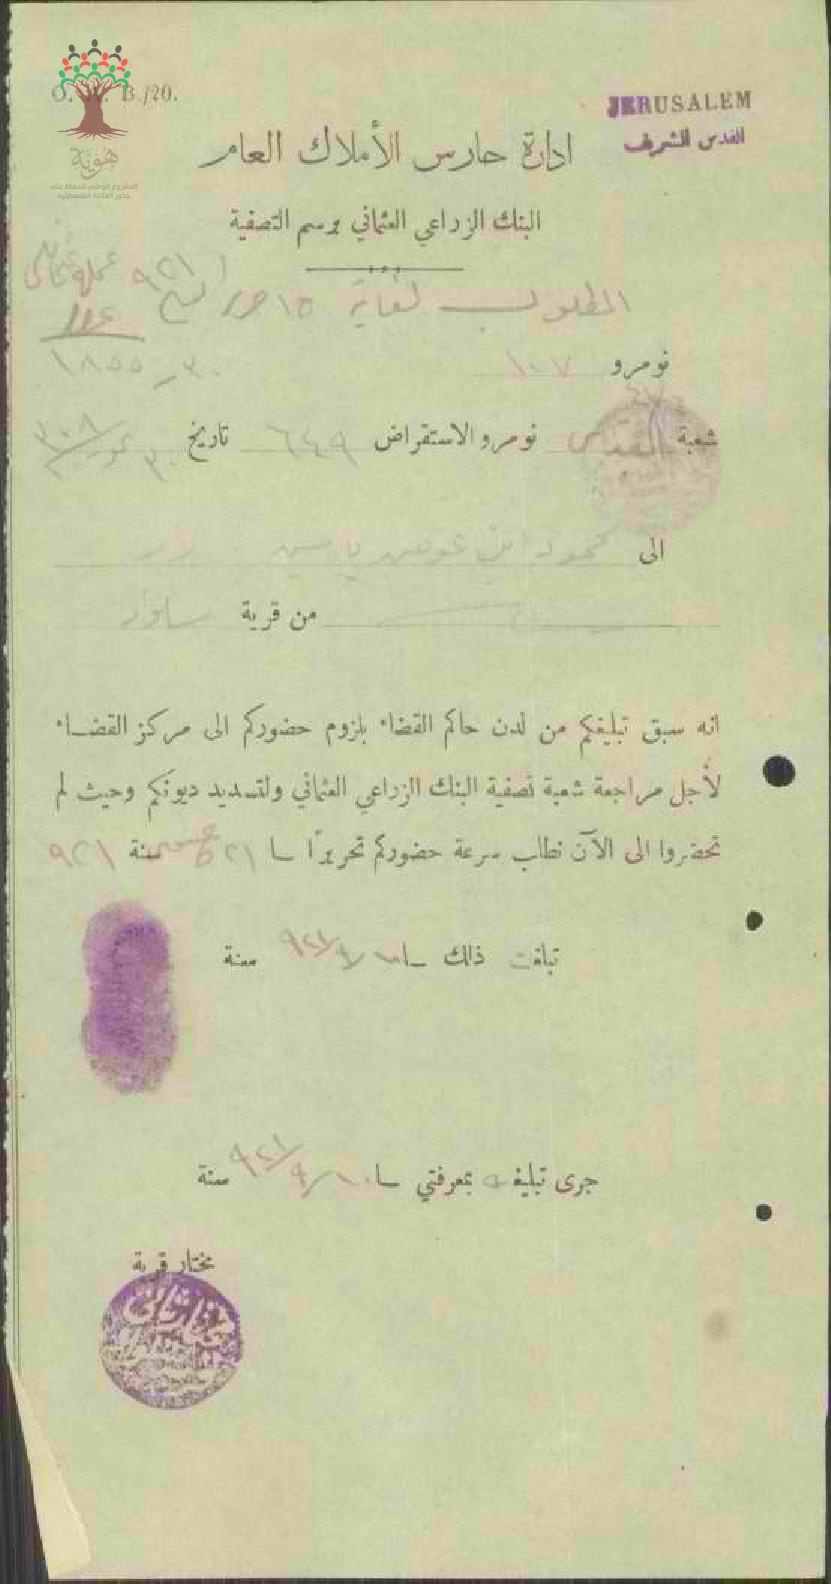 O. A. B./20.
JERUSALEM
القدس الشريف
هوية
المشروع الوطني للحفاظ على
جذور العائلة الفلسطينية
ادارة حارس الأملاك العام
البنك الزراعي العثماني برسم التصفية
المطلوب لغاية ١٥ ٩٢١
نومرو ١٠٧
شعبة القدس نومرو الاستقراض ٦٤٩ تاريخ
الى محمود ابن عوض ياسين
من قرية سلواد
انه سبق تبليغكم من لدن حاكم القضاء بلزوم حضوركم الى مركز القضاء
لأجل مراجعة شعبة تصفية البنك الزراعي العثماني ولتسديد ديونكم وحيث لم
تحضروا الى الآن نطلب سرعة حضوركم تحريرًا سنة ٩٢١
تبلغت ذلك سنة
جرى تبليغه بمعرفتي سنة
مختار قرية